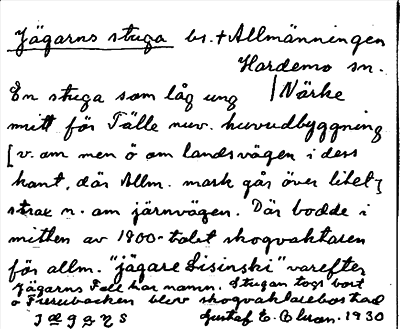 Jägarns stuga bs. + Allmänningen
Hardemo sn.
En stuga som låg ung | Närke
mitt för Tälle nuv. huvudbyggning
[v. om men ö om landsvägen i dess
kant, där Allm. mark går över litet]
strax n. om järnvägen. Där bodde i
mitten av 1900-talet skogvaktaren
för allm. "jägare Lisinski" varefter
Jägarns Fall har namn. Stugan togs bort
o blev skogvaktarebostad
Gustaf E. Olsson. 1930